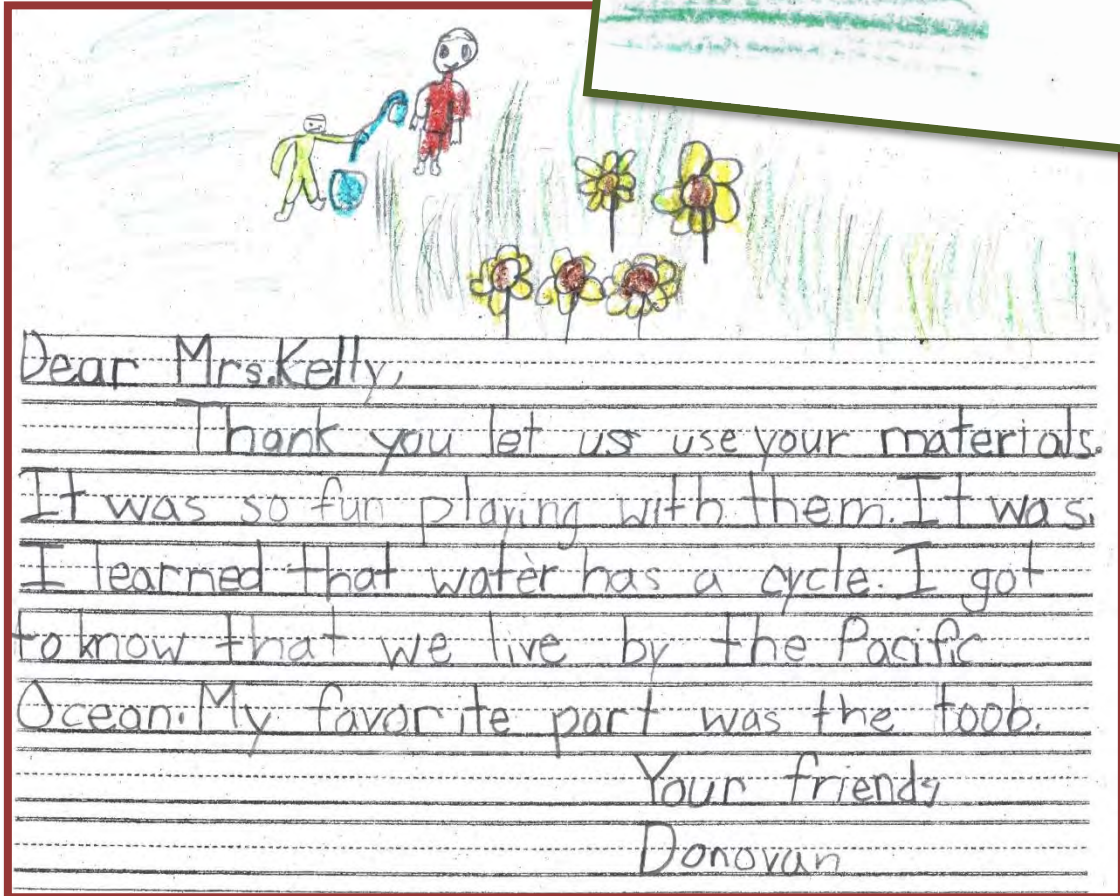 Dear Mrs.Kelly,
Thank you let us use your materials.
It was so fun playing with them. It was.
I learned that water has a cycle. I got
to know that we live by the Pacific
Ocean. My favorite part was the toob.
Your friend,
Donovan